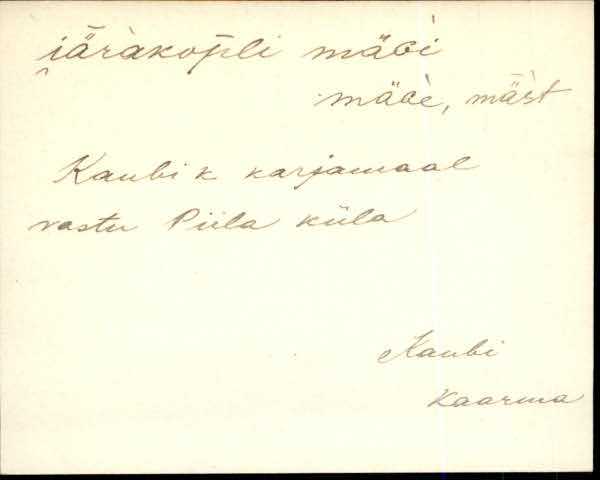 i̯ä̀ràkop̄li mäɢì
mäɢè, mä̀st
Kaubi k karjamaal
vastu Piila küla
Kaubi
Kaarma